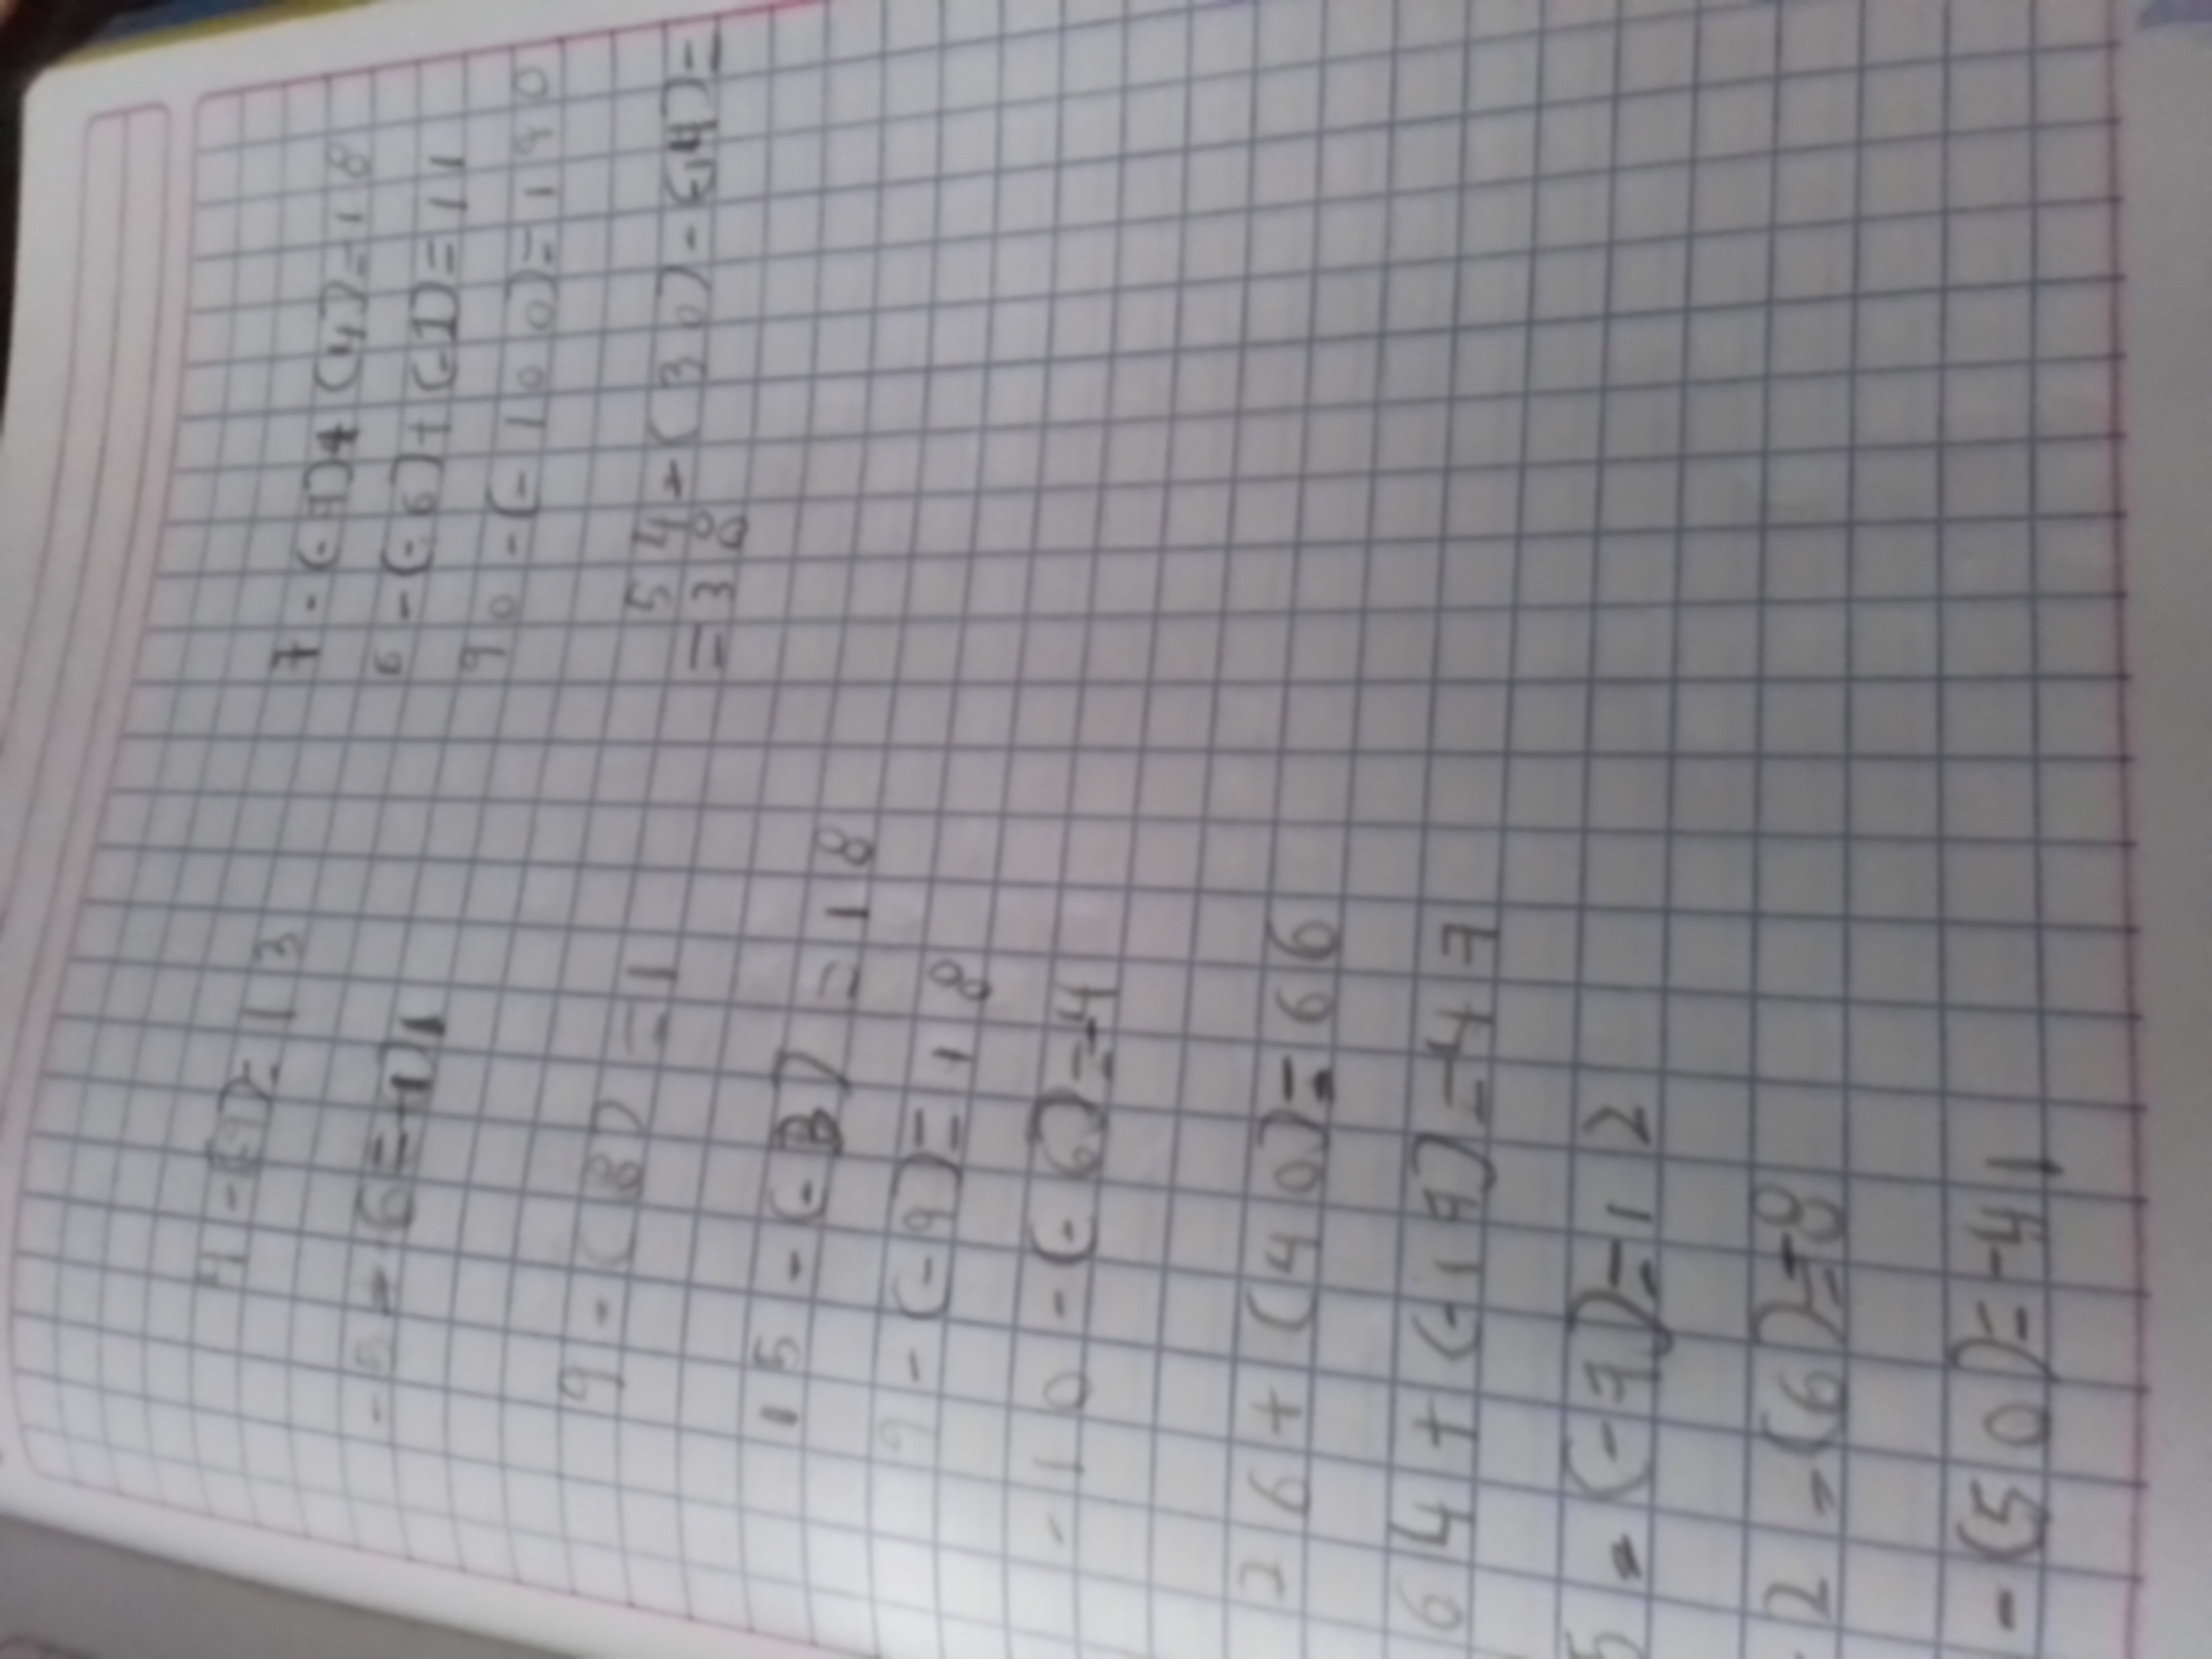 4-(-9)=13
-5-6=-11
9-(8) =1
15-(-3) =18
9-(-9)=18
-10-(-6)=-4
26+(40)=66
64+(-17)=47
5-(-7)=12
2-(6)=-8
-(50)=-41
7-(-7)+(4)=18
6-(-6)+(-1)=11
90-(-100)=190
54+(30)-(-34)=
=38